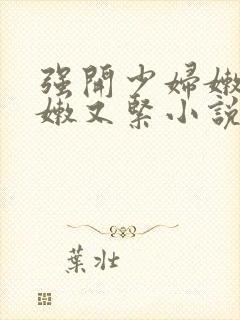 强開少婦嫩
嫩又緊小說
葉壯